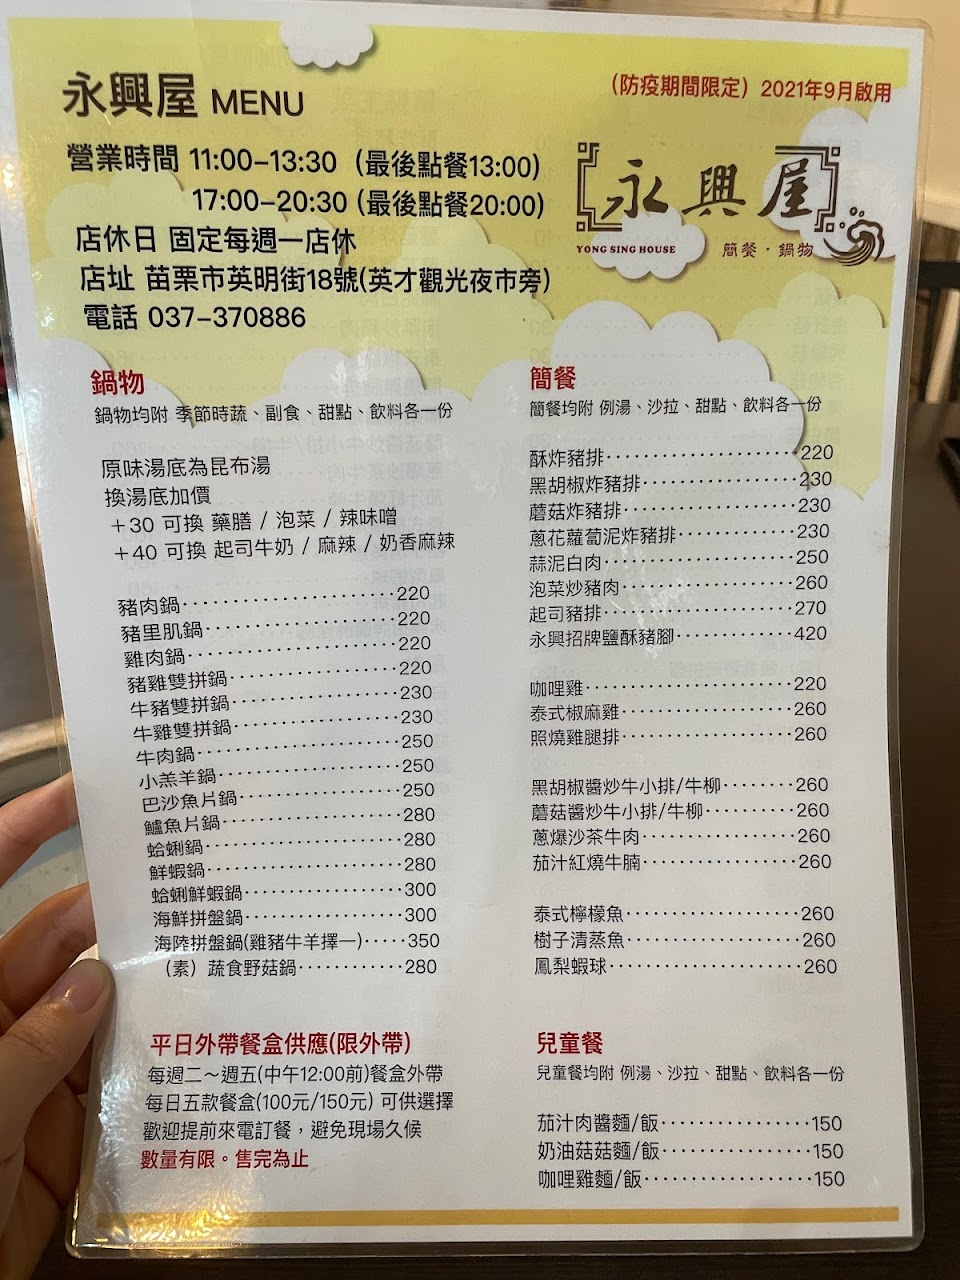 永興屋 MENU
(防疫期間限定) 2021年9月啟用
營業時間 11:00–13:30 (最後點餐13:00)
17:00–20:30 (最後點餐20:00)
店休日 固定每週一店休
店址 苗栗市英明街18號(英才觀光夜市旁)
電話 037–370886
永興屋
YONG SING HOUSE
簡餐・鍋物
鍋物
鍋物均附 季節時蔬、副食、甜點、飲料各一份
原味湯底為昆布湯
換湯底加價
＋30 可換 藥膳 / 泡菜 / 辣味噌
＋40 可換 起司牛奶 / 麻辣 / 奶香麻辣
豬肉鍋‧‧‧‧‧‧‧‧‧‧‧‧220
豬里肌鍋‧‧‧‧‧‧‧‧‧‧‧‧220
雞肉鍋‧‧‧‧‧‧‧‧‧‧‧‧220
豬雞雙拼鍋‧‧‧‧‧‧‧‧‧‧‧‧220
牛豬雙拼鍋‧‧‧‧‧‧‧‧‧‧‧‧230
牛雞雙拼鍋‧‧‧‧‧‧‧‧‧‧‧‧230
牛肉鍋‧‧‧‧‧‧‧‧‧‧‧‧250
小羔羊鍋‧‧‧‧‧‧‧‧‧‧‧‧250
巴沙魚片鍋‧‧‧‧‧‧‧‧‧‧‧‧250
鱸魚片鍋‧‧‧‧‧‧‧‧‧‧‧‧280
蛤蜊鍋‧‧‧‧‧‧‧‧‧‧‧‧280
鮮蝦鍋‧‧‧‧‧‧‧‧‧‧‧‧280
蛤蜊鮮蝦鍋‧‧‧‧‧‧‧‧‧‧‧‧300
海鮮拼盤鍋‧‧‧‧‧‧‧‧‧‧‧‧300
海陸拼盤鍋(雞豬牛羊擇一)‧‧‧‧‧350
（素）蔬食野菇鍋‧‧‧‧‧‧‧‧‧‧‧280
平日外帶餐盒供應(限外帶)
每週二～週五(中午12:00前)餐盒外帶
每日五款餐盒(100元/150元) 可供選擇
歡迎提前來電訂餐，避免現場久候
數量有限。售完為止
簡餐
簡餐均附 例湯、沙拉、甜點、飲料各一份
酥炸豬排‧‧‧‧‧‧‧‧‧‧‧‧220
黑胡椒炸豬排‧‧‧‧‧‧‧‧‧‧‧‧230
蘑菇炸豬排‧‧‧‧‧‧‧‧‧‧‧‧230
蔥花蘿蔔泥炸豬排‧‧‧‧‧‧‧‧‧‧‧‧230
蒜泥白肉‧‧‧‧‧‧‧‧‧‧‧‧250
泡菜炒豬肉‧‧‧‧‧‧‧‧‧‧‧‧260
起司豬排‧‧‧‧‧‧‧‧‧‧‧‧270
永興招牌鹽酥豬腳‧‧‧‧‧‧‧‧‧‧‧‧420
咖哩雞‧‧‧‧‧‧‧‧‧‧‧‧220
泰式椒麻雞‧‧‧‧‧‧‧‧‧‧‧‧260
照燒雞腿排‧‧‧‧‧‧‧‧‧‧‧‧260
黑胡椒醬炒牛小排/牛柳‧‧‧‧‧‧‧‧260
蘑菇醬炒牛小排/牛柳‧‧‧‧‧‧‧‧‧260
蔥爆沙茶牛肉‧‧‧‧‧‧‧‧‧‧‧‧260
茄汁紅燒牛腩‧‧‧‧‧‧‧‧‧‧‧‧260
泰式檸檬魚‧‧‧‧‧‧‧‧‧‧‧‧260
樹子清蒸魚‧‧‧‧‧‧‧‧‧‧‧‧260
鳳梨蝦球‧‧‧‧‧‧‧‧‧‧‧‧260
兒童餐
兒童餐均附 例湯、沙拉、甜點、飲料各一份
茄汁肉醬麵/飯‧‧‧‧‧‧‧‧‧‧‧‧150
奶油菇菇麵/飯‧‧‧‧‧‧‧‧‧‧‧‧150
咖哩雞麵/飯‧‧‧‧‧‧‧‧‧‧‧‧150